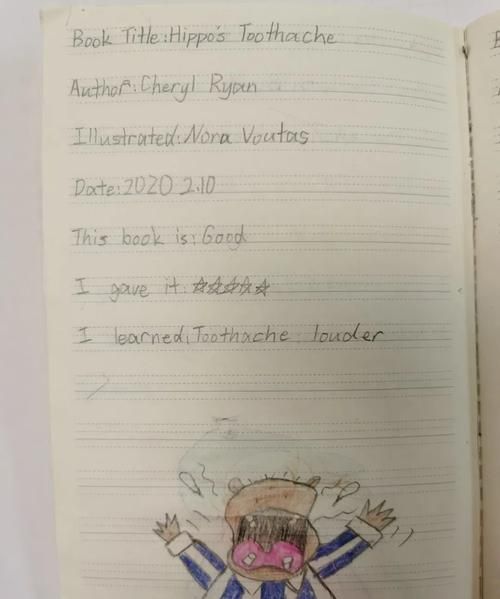 Book Title:Hippo's Toothache
Author:Cheryl Ryan
Illustrated:Nora Voutas
Date:2020 2.10
This book is:Good
I gave it:☆☆☆☆☆
I learned:Toothache louder